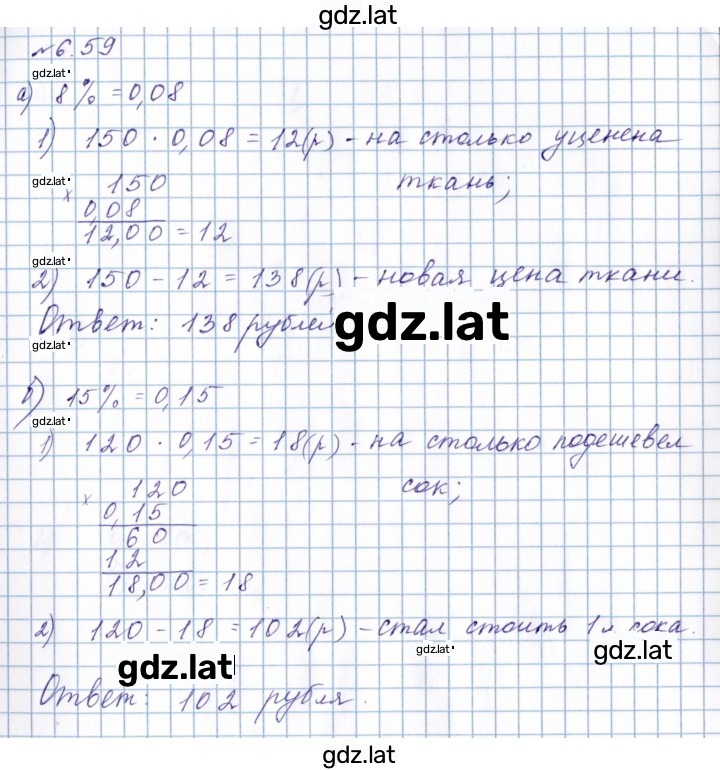 gdz.lat
№6.59
gdz.lat
а) 8% = 0,08
1) 150 · 0,08 = 12(р) - на столько уценена
gdz.lat
ткань;
150
×
0,08
12,00 = 12
gdz.lat
2) 150 - 12 = 138(р) - новая цена ткани.
Ответ: 138 рублей
gdz.lat
gdz.lat
б) 15% = 0,15
gdz.lat
1) 120 · 0,15 = 18(р) - на столько подешевел
сок;
120
×
0,15
60
12
18,00 = 18
2) 120 - 18 = 102(р) - стал стоить 1л сока.
gdz.lat
gdz.lat
gdz.lat
Ответ: 102 рубля.
gdz.lat